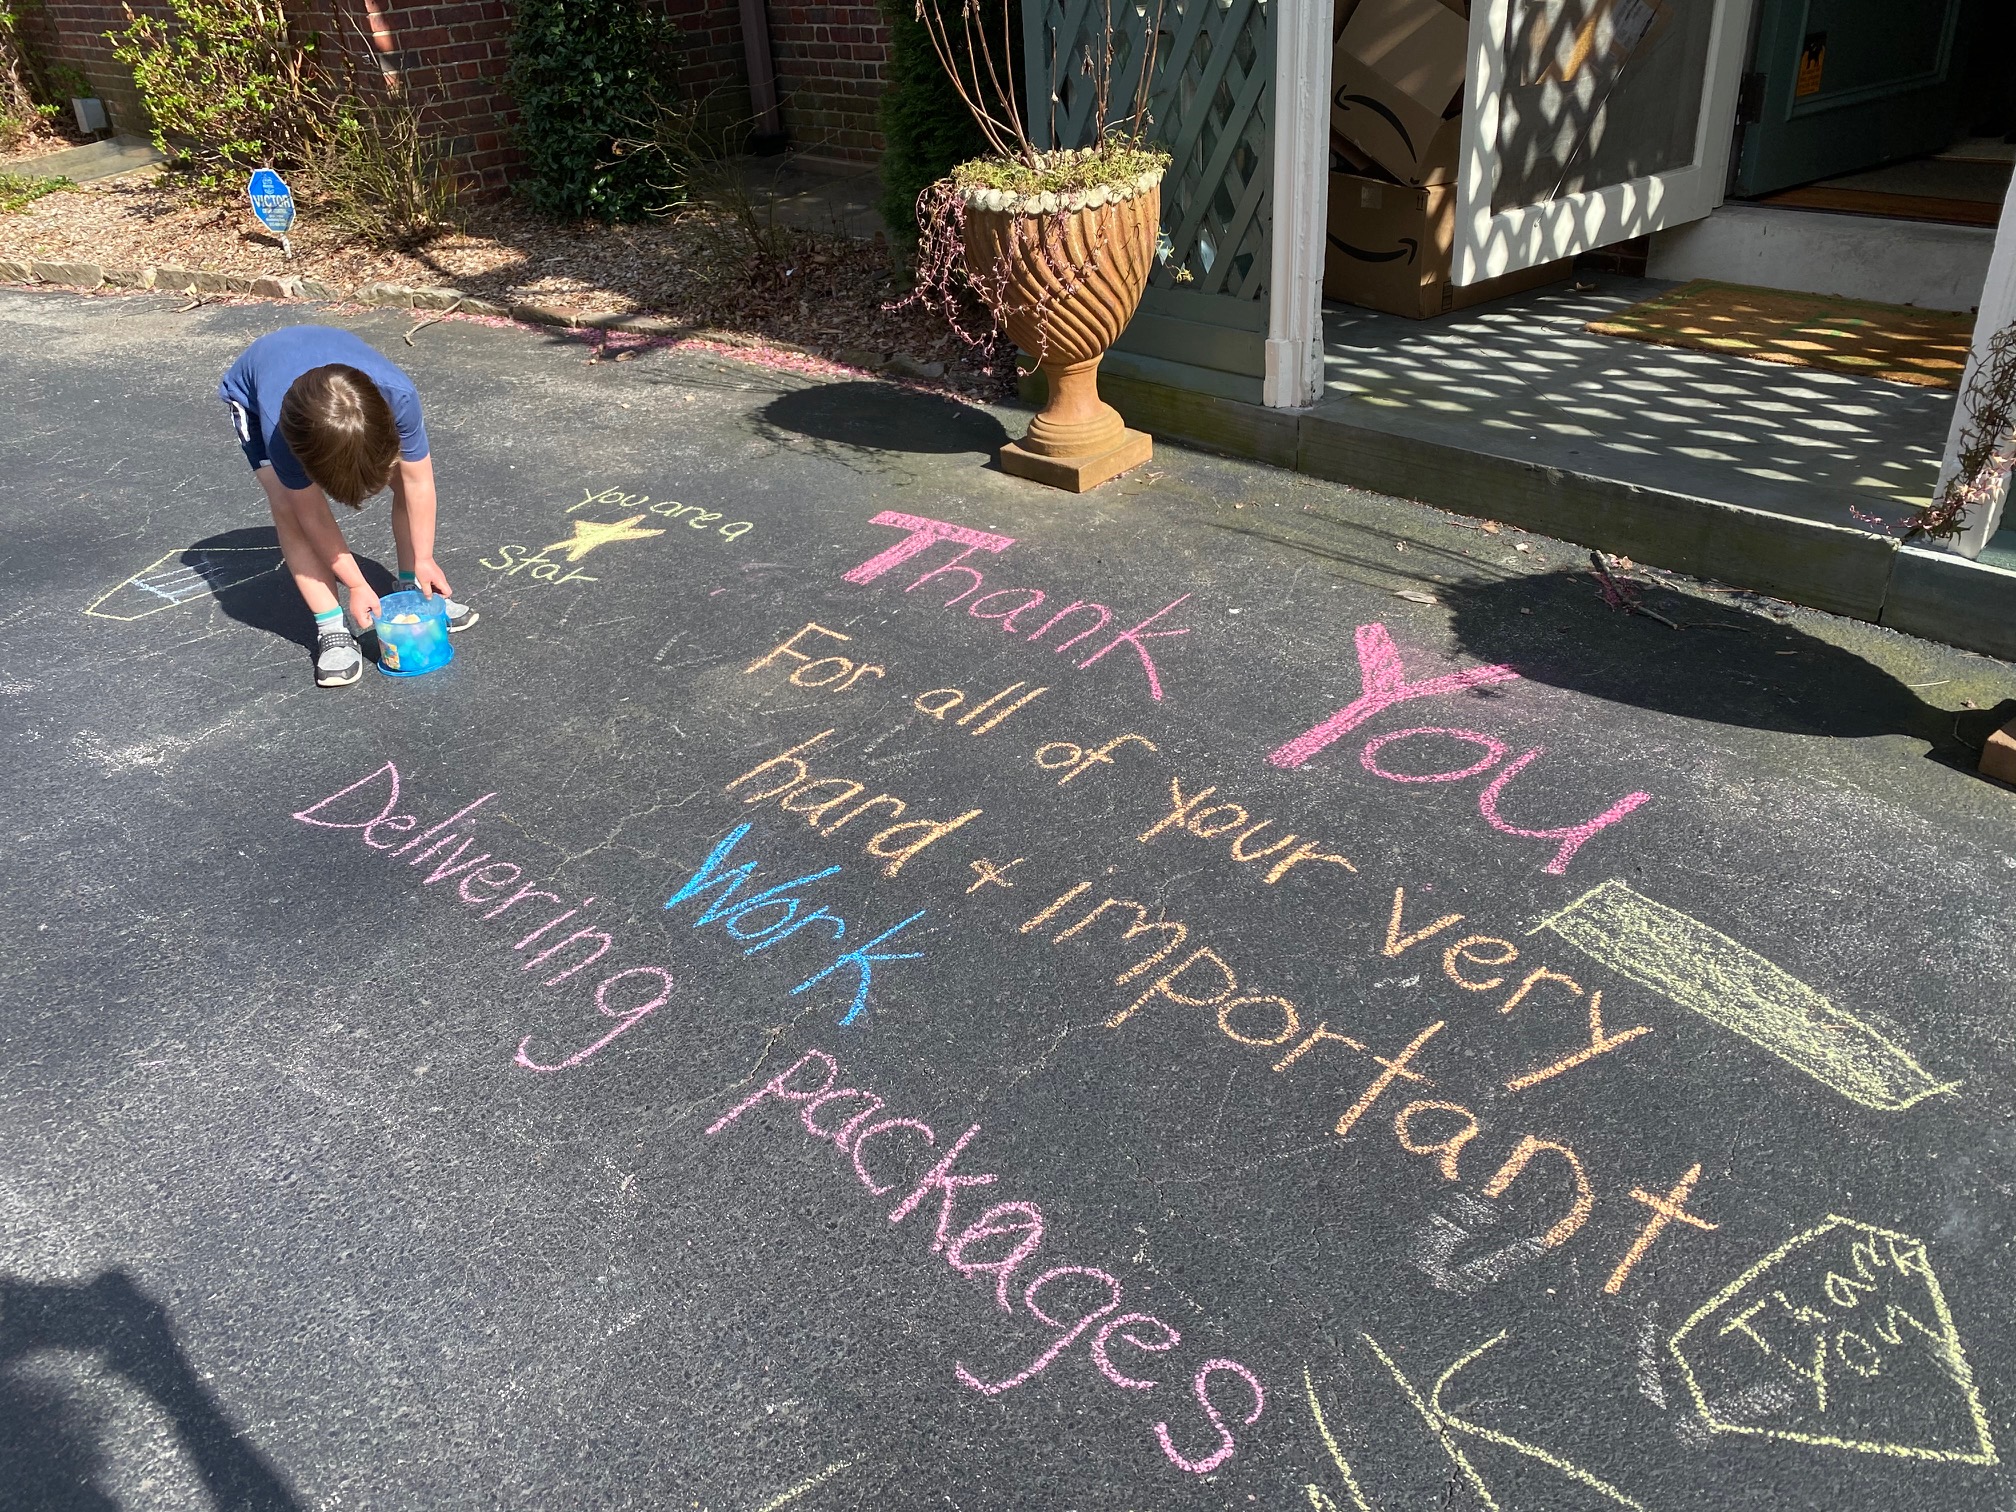 VICTOR
You are a
star
Thank You
For all of your very
hard + important
Work
Delivering packages
Thank
You
K